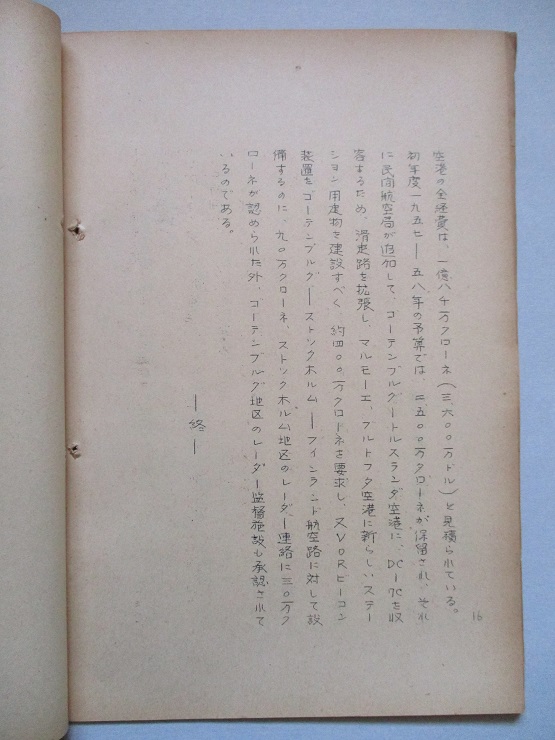 空港の全経費は、一億八千万クローネ(三、六〇〇万ドル)と見積られている。
初年度一九五七―五八年の予算では、二、五〇〇万クローネが保留され、それ
に民間航空局が追加して、ゴーテンブルグートルスランダ空港に、DC-7Cを収
容するため、滑走路を拡張し、マルモーエ、ブルトフタ空港に新らしいステー
ション用建物を建設すべく、約四〇〇万クローネを要求し、又VORビーコン
装置をゴーテンブルグ―ストックホルム―フインランド航空路に対して設
備するのに、九〇万クローネ、ストックホルム地区のレーダー連絡に三〇万ク
ローネが認められた外、ゴーテンブルグ地区のレーダー監視施設も承認されて
いるのである。
―終―
16